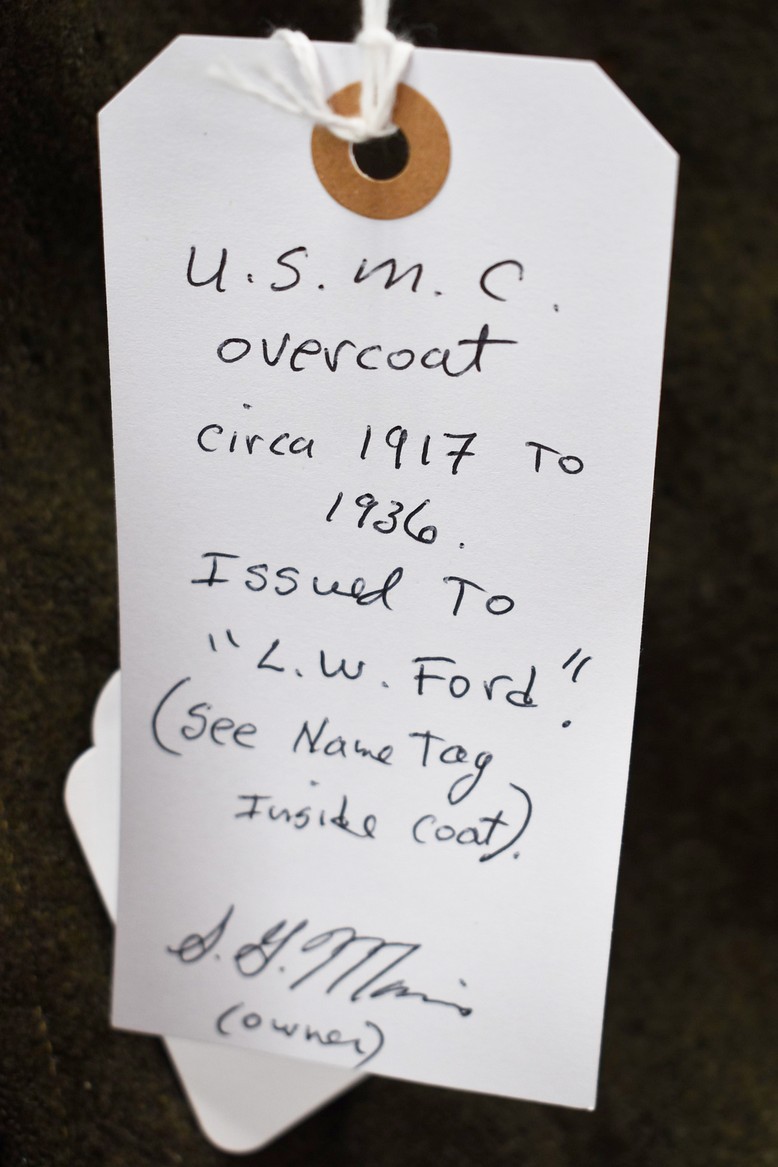 U.S.M.C.
overcoat
circa 1917 To
1936.
Issued To
"L.W. Ford."
(see Name Tag
Inside coat).
S.G.
(owner)